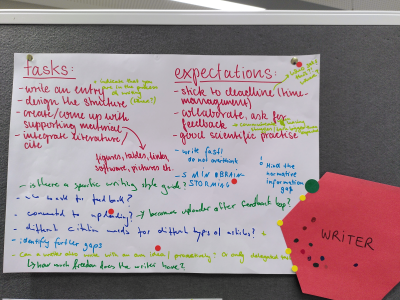 tasks:
- write an entry
- indicate that you are in the process of writing
- design the structure
- create/come up with supporting material
- integrate literature/
cite
figures, tables, links, software, pictures etc.
expectations:
- stick to deadline (time-
management)
- collaborate, ask for
feedback
- good scientific practise
- write fast!
do not overthink
- 5 MIN BRAIN
STORMING
! Mind the
normative
information
gap
- is there a specific writing style guide?
- to feedback?
- connected to uploading? → becomes uploader after feedback loop?
- different citation needs for different types of articles?
- identify further gaps
- Can a writer also with an own idea / proactively? Or only delegated
↳ how much freedom does the writer have?
WRITER